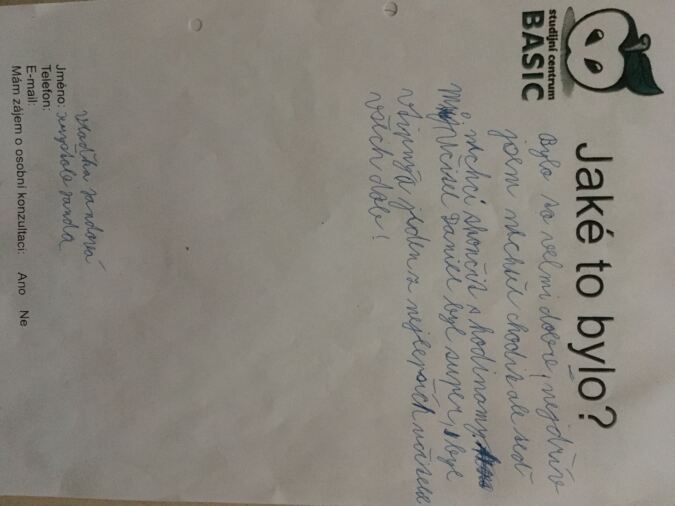 studijní centrum
BASIC
Jaké to bylo?
Bylo to velmi dobré, nejdřív
jsem nechtěl chodit ale teď
nechci skončit s hodinamy.
Můj učitel Daniel byl super, byl
vtipnyा jeden z nejlepších učitelů
všech dob!
Jméno:
Telefon:
E-mail:
Mám zájem o osobní konzultaci: Ano Ne